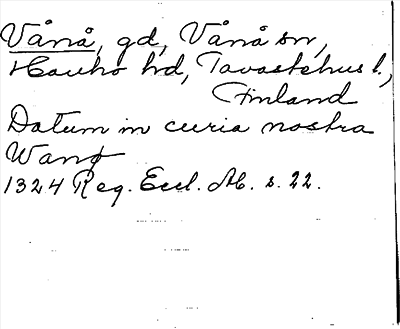 Vånå, gd, Vånå sn,
Hauho hd, Tavastehus l.,
Finland
Datum in curia nostra
Wanø
1324 Reg. Eccl. Ab. s. 22.